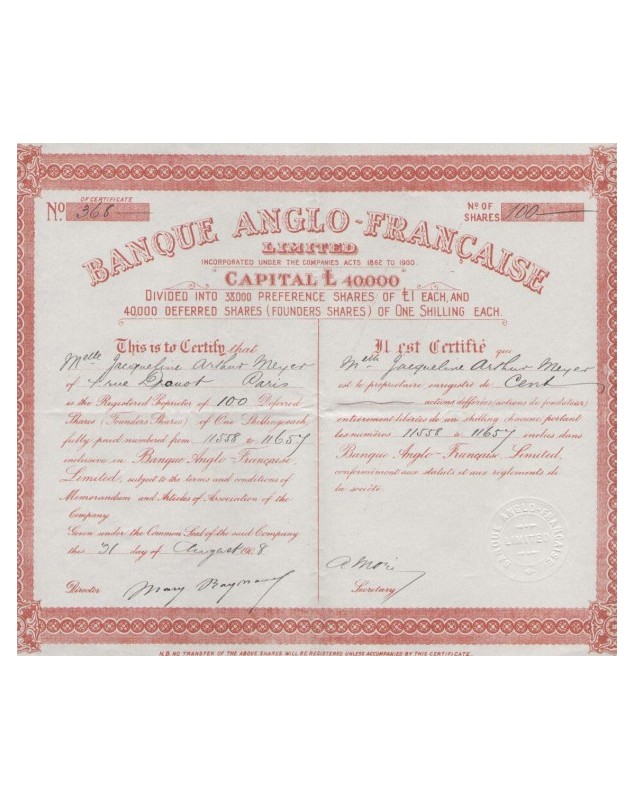 OF CERTIFICATE
No. 368
No OF
SHARES 100
BANQUE ANGLO-FRANÇAISE
LIMITED
INCORPORATED UNDER THE COMPANIES ACTS 1862 TO 1900.
CAPITAL £ 40.000
DIVIDED INTO 38.000 PREFERENCE SHARES OF £1 EACH, AND
40.000 DEFERRED SHARES (FOUNDERS SHARES) OF ONE SHILLING EACH.
This is to Certify that
Melle Jacqueline Arthur Meyer
of rue Drouot Paris
is the Registered Proprietor of 100 Deferred
Shares (Founders Shares) of One Shilling each,
fully paid numbered from 11558 to 11657
inclusive in Banque Anglo-Française,
Limited, subject to the terms and conditions of
Memorandum and Articles of Association of the
Company
Given under the Common Seal of the said Company
this 31 day of August 1908
Director
Il est Certifié que
Melle Jacqueline Arthur Meyer
est le propriétaire enregistré de Cent
actions différées (actions de fondateur)
entièrement libérées de un shilling chacune, portant
les numéros 11558 à 11657 inclus dans
Banque Anglo-Française, Limited,
conformément aux statuts et aux règlements de
la société.
BANQUE ANGLO-FRANÇAISE
LIMITED
Secretary
N.B. NO TRANSFER OF THE ABOVE SHARES WILL BE REGISTERED UNLESS ACCOMPANIED BY THIS CERTIFICATE.